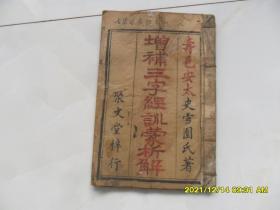 壽邑安太史雪園氏著
增補三字經訓蒙析解
聚文堂梓行
2021/12/14 09:31